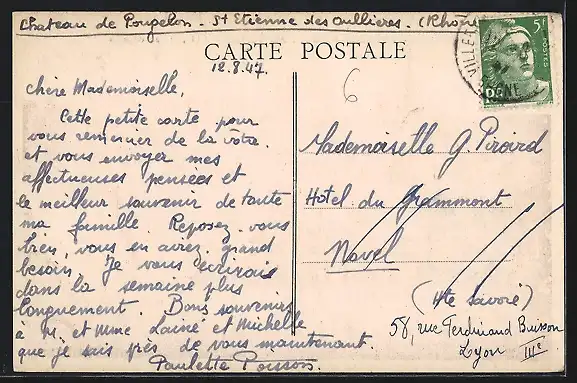 Chateau de Pougelon - St Etienne des Oullières - (Rhône
CARTE POSTALE
12.8.47.
6
Chère Mademoiselle,
Cette petite carte pour
vous remercier de la vôtre
et vous envoyer mes
affectueuses pensées et
le meilleur souvenir de toute
ma famille. Reposez-vous
bien, vous en avez grand
besoin. Je vous écrirai
dans la semaine plus
longuement. Bons souvenirs
à M. et Mme Lainé et Michelle
que je sais près de vous maintenant.
Paulette Poisson.
5F
POSTES
VILLEF
Mademoiselle G. Pirard
Hotel du Grammont
Novel
(Hte Savoie)
58, rue Ferdinand Buisson
Lyon IIIe